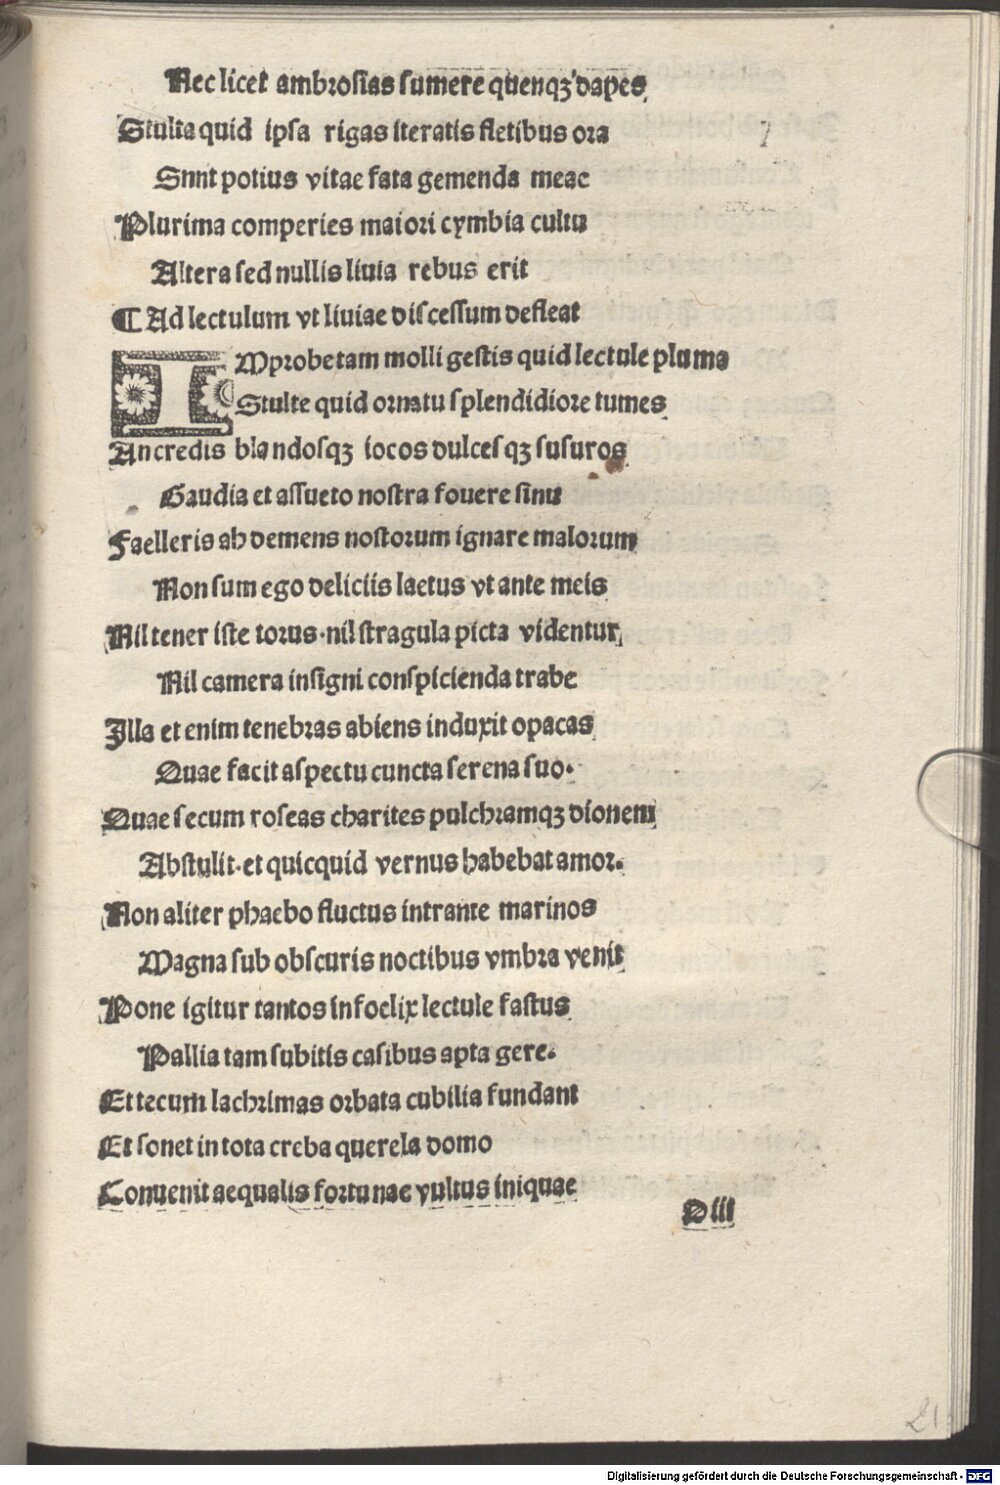 Nec licet ambrosias sumere quenqꝫ dapes
Stulta quid ipsa rigas iteratis fletibus ora
Snnt potius vitae fata gemenda meae
Plurima comperies maiori cymbia cultu
Altera sed nullis liuia rebus erit
¶ Ad lectulum vt liuiae discessum defleat
IMprobe tam molli gestis quid lectule pluma
Stulte quid ornatu splendidiore tumes
An credis blandosqꝫ iocos dulcesqꝫ susuros
Gaudia et assueto nostra fouere sinu
Faelleris ah demens nostorum ignare malorum
Non sum ego deliciis laetus vt ante meis
Nil tener iste torus·nil stragula picta videntur
Nil camera insigni conspicienda trabe
Illa et enim tenebras abiens induxit opacas
Quae facit aspectu cuncta serena suo·
Quae secum roseas charites pulchramqꝫ dionem
Abstulit·et quicquid vernus habebat amor·
Non aliter phaebo fluctus intrante marinos
Magna sub obscuris noctibus vmbra venit
Pone igitur tantos infoelix lectule fastus
Pallia tam subitis casibus apta gere·
Et tecum lachrimas orbata cubilia fundant
Et sonet in tota creba querela domo
Conuenit aequalis fortunae vultus iniquae
D iii
21
Digitalisierung gefördert durch die Deutsche Forschungsgemeinschaft - DFG